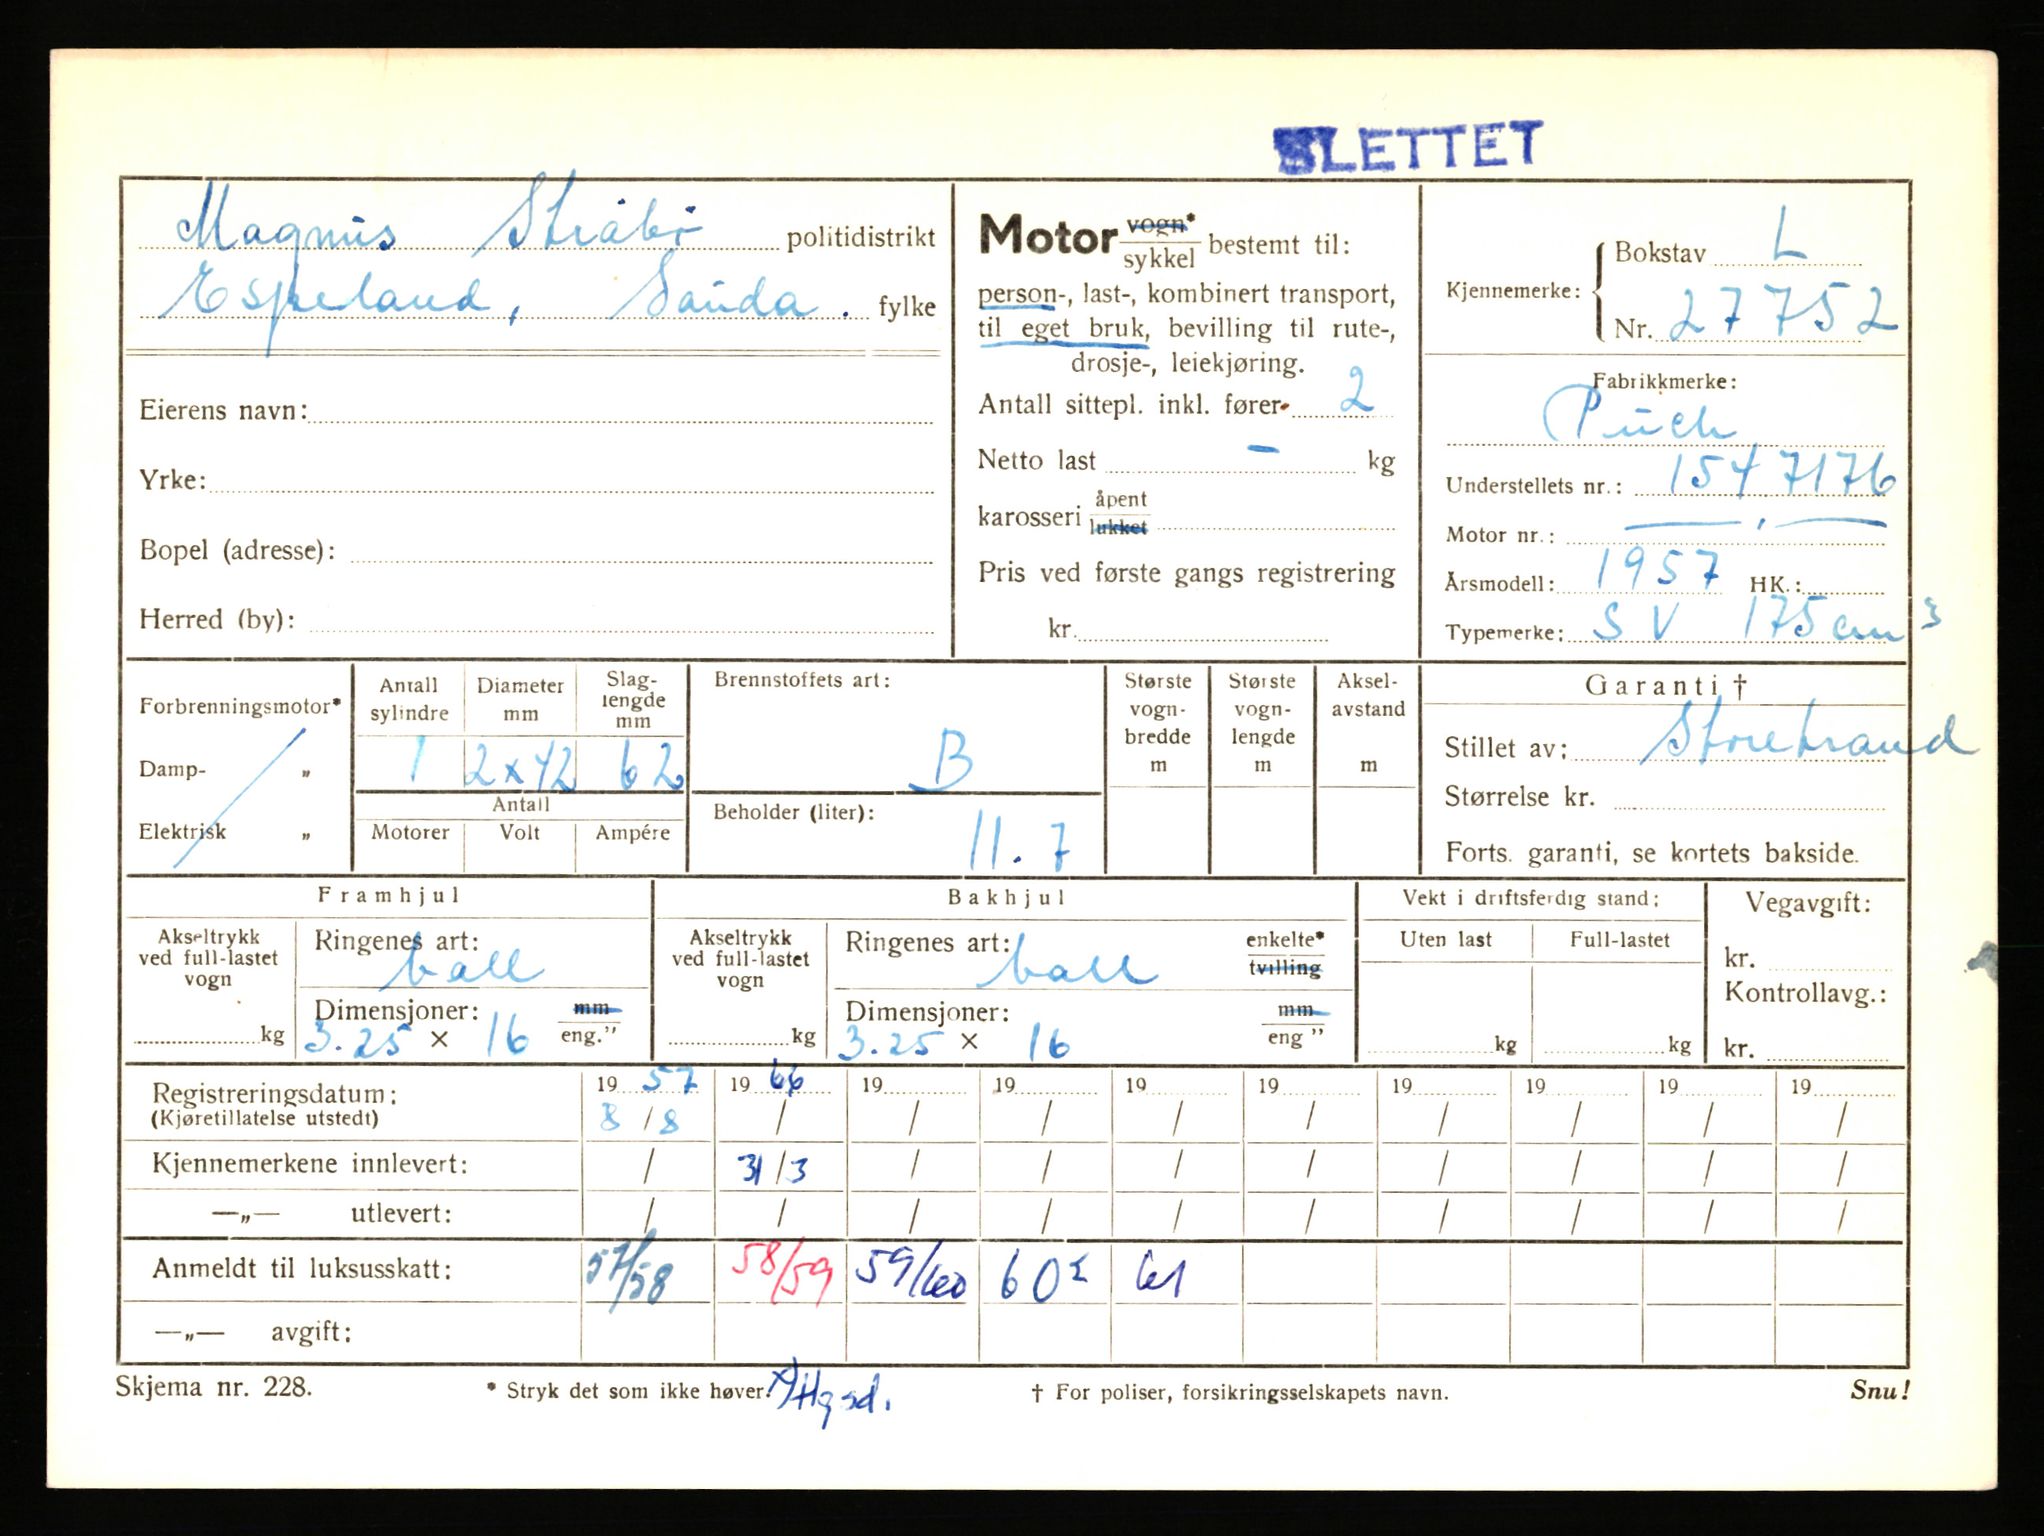 SLETTET
Magnus Stråbø politidistrikt
Espeland, Sauda. fylke
Eierens navn:
Yrke:
Bopel (adresse):
Herred (by):
Motor vogn* sykkel bestemt til:
person-, last-, kombinert transport,
til eget bruk, bevilling til rute-,
drosje-, leiekjøring.
Antall sittepl. inkl. fører 2
Netto last - kg
karosseri åpent lukket
Pris ved første gangs registrering
kr.
Kjennemerke: Bokstav L
Nr. 27752
Fabrikkmerke:
Puch
Understellets nr.: 1547176
Motor nr.: — , —
Årsmodell: 1957 HK.:
Typemerke: SV 175 cm3
Forbrenningsmotor*
Damp- „
Elektrisk „
Antall sylindre
Diameter mm
Slaglengde mm
1 2x42 62
Antall
Motorer Volt Ampére
Brennstoffets art:
B
Beholder (liter):
11.7
Største vogn-bredde m
Største vogn-lengde m
Aksel-avstand m
Garanti †
Stillet av: Storebrand
Størrelse kr.
Forts. garanti, se kortets bakside.
Framhjul
Akseltrykk ved full-lastet vogn
kg
Ringenes art:
ball
Dimensjoner: mm
3.25 x 16 eng."
Bakhjul
Akseltrykk ved full-lastet vogn
kg
Ringenes art: enkelte*
ball tvilling
Dimensjoner: mm
3.25 x 16 eng"
Vekt i driftsferdig stand:
Uten last Full-lastet
kg kg
Vegavgift:
kr.
Kontrollavg.:
kr.
Registreringsdatum: 19 57 19 66 19 19 19 19 19 19 19 19
(Kjøretillatelse utstedt) 8/8 / / / / / / / / /
Kjennemerkene innlevert: / 31/3 / / / / / / / /
—„— utlevert: / / / / / / / / / /
Anmeldt til luksusskatt: 57/58 58/59 59/60 60 61
—„— avgift:
Skjema nr. 228.
* Stryk det som ikke høver.
† For poliser, forsikringsselskapets navn.
Snu!